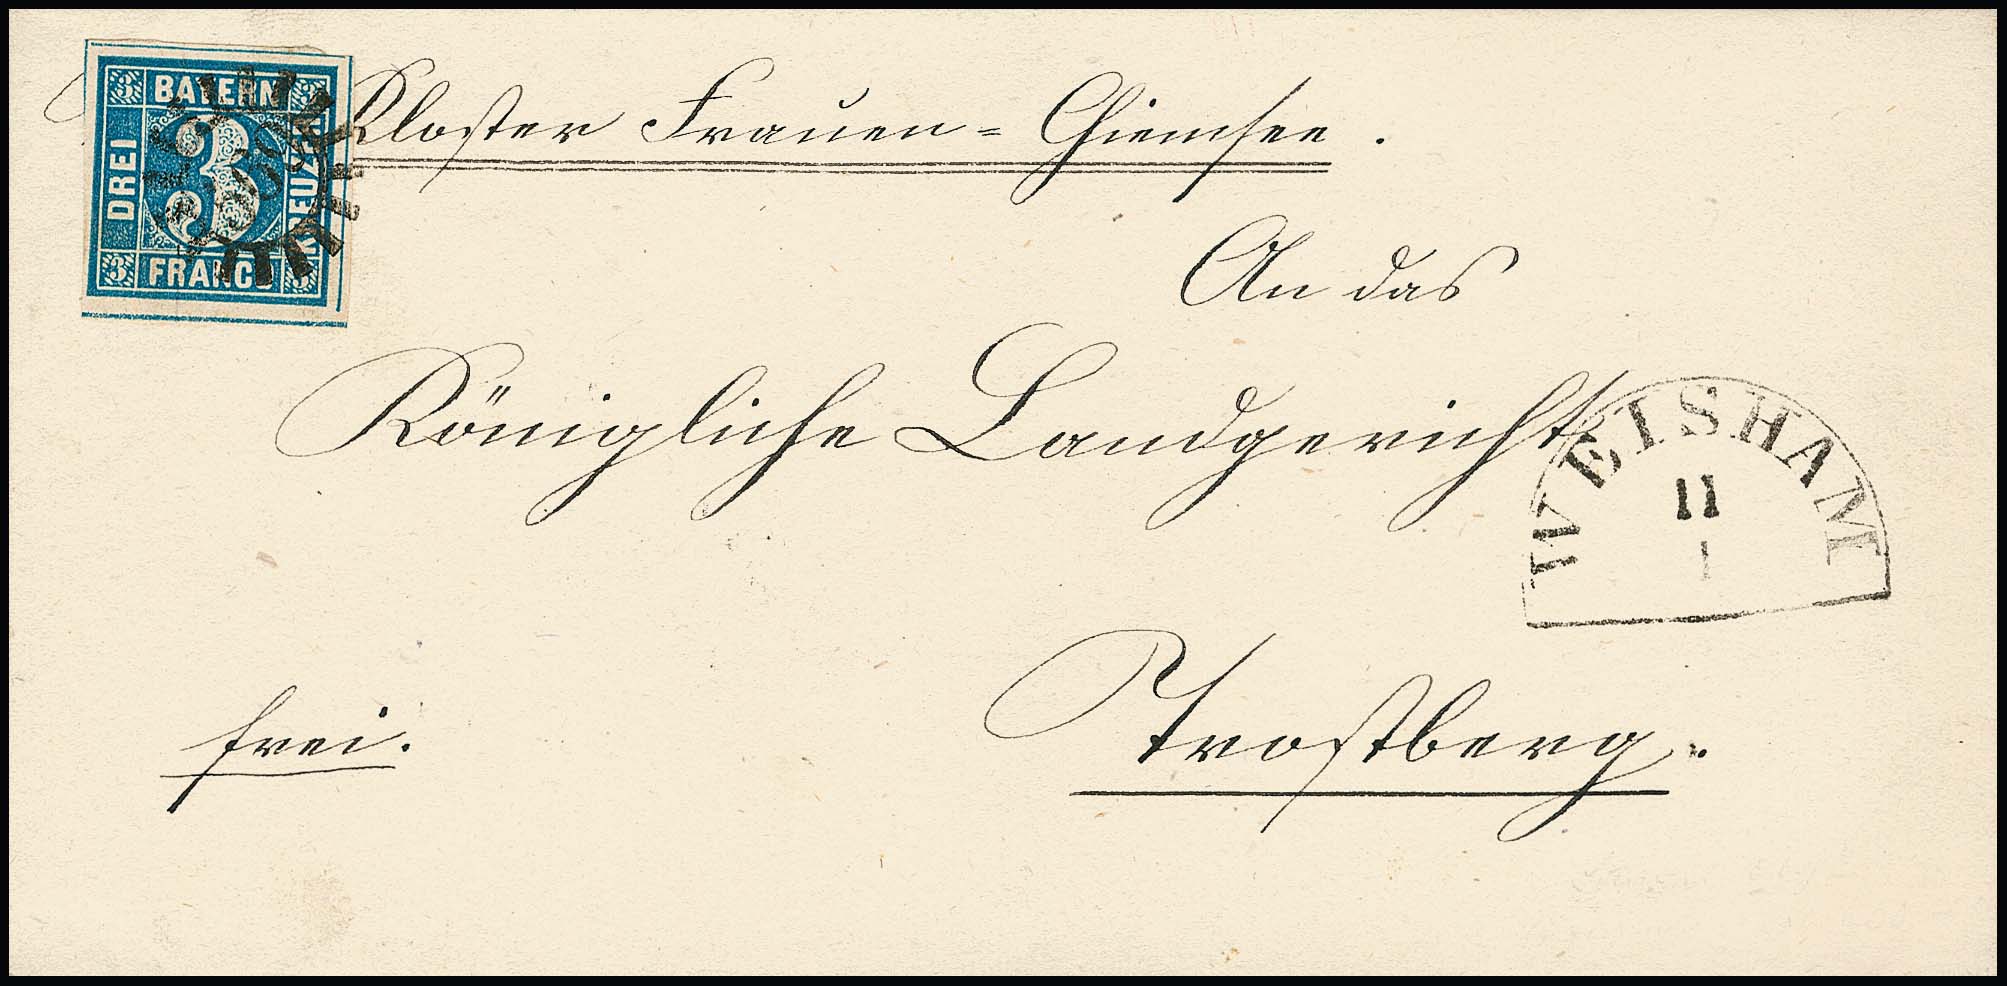 BAYERN
DREI
3
KREUZER
FRANCO
3 3 3 3
Kloster Frauen=Chiemsee.
An das
Königliche Landgericht
WEISHAM
11
1
frei.
Trostberg.